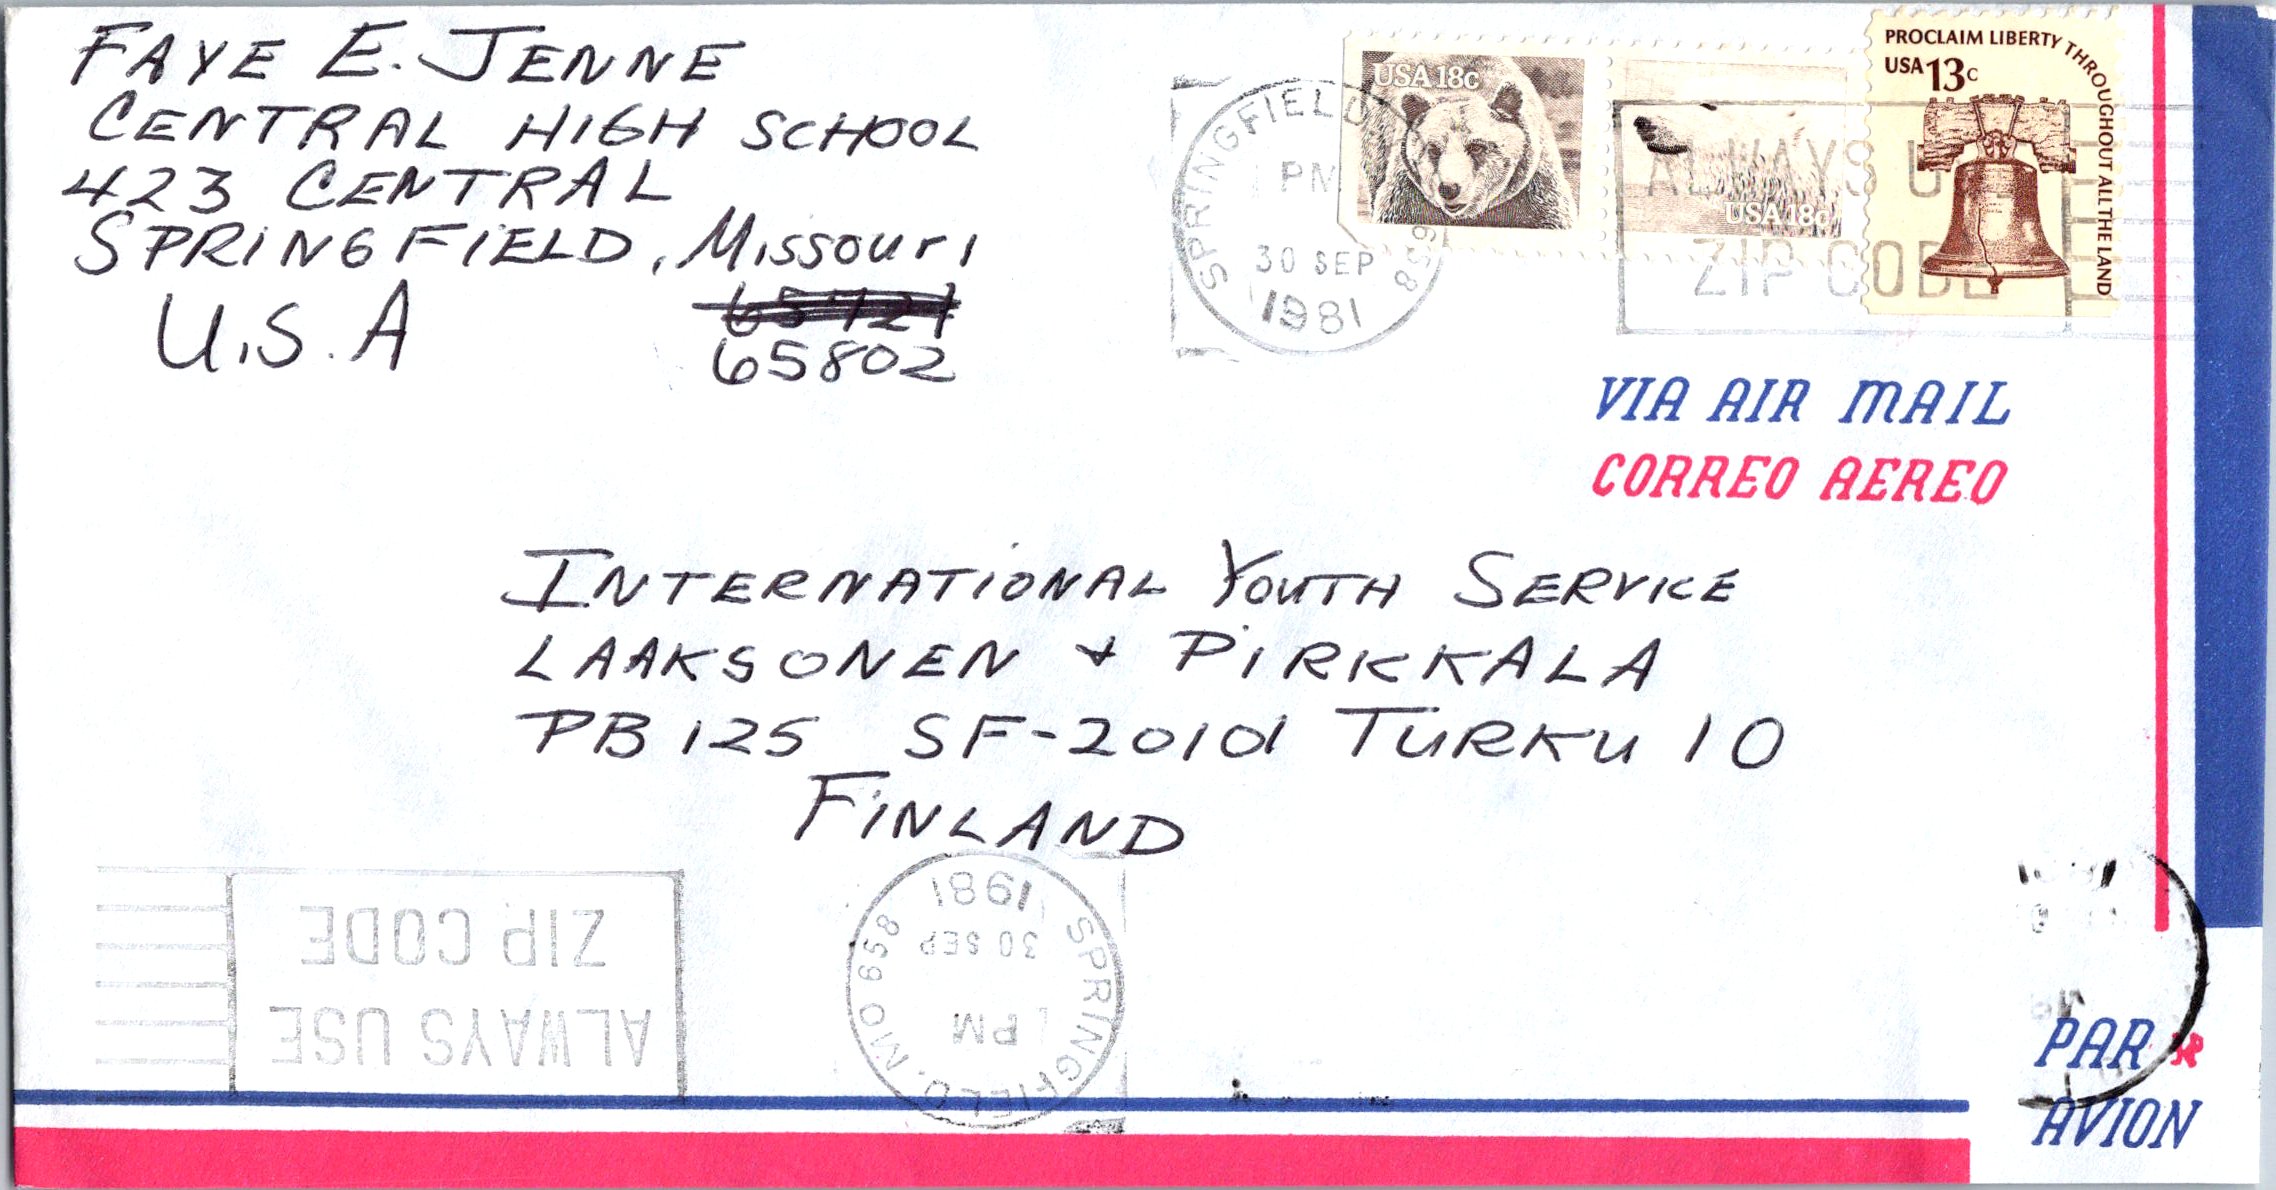 FAYE E. JENNE
CENTRAL HIGH SCHOOL
423 CENTRAL
SPRINGFIELD, Missouri
65802
U.S.A
USA 18c
USA 18c
PROCLAIM LIBERTY THROUGHOUT ALL THE LAND
USA 13c
SPRINGFIELD
658
PM
30 SEP
1981
ALWAYS U
ZIP CODE
VIA AIR MAIL
CORREO AEREO
INTERNATIONAL YOUTH SERVICE
LAAKSONEN + PIRKKALA
PB 125 SF-20101 TURKU 10
FINLAND
ALWAYS USE
ZIP CODE
SPRINGFIELD, MO 658
PM
30 SEP
1981
PAR
AVION